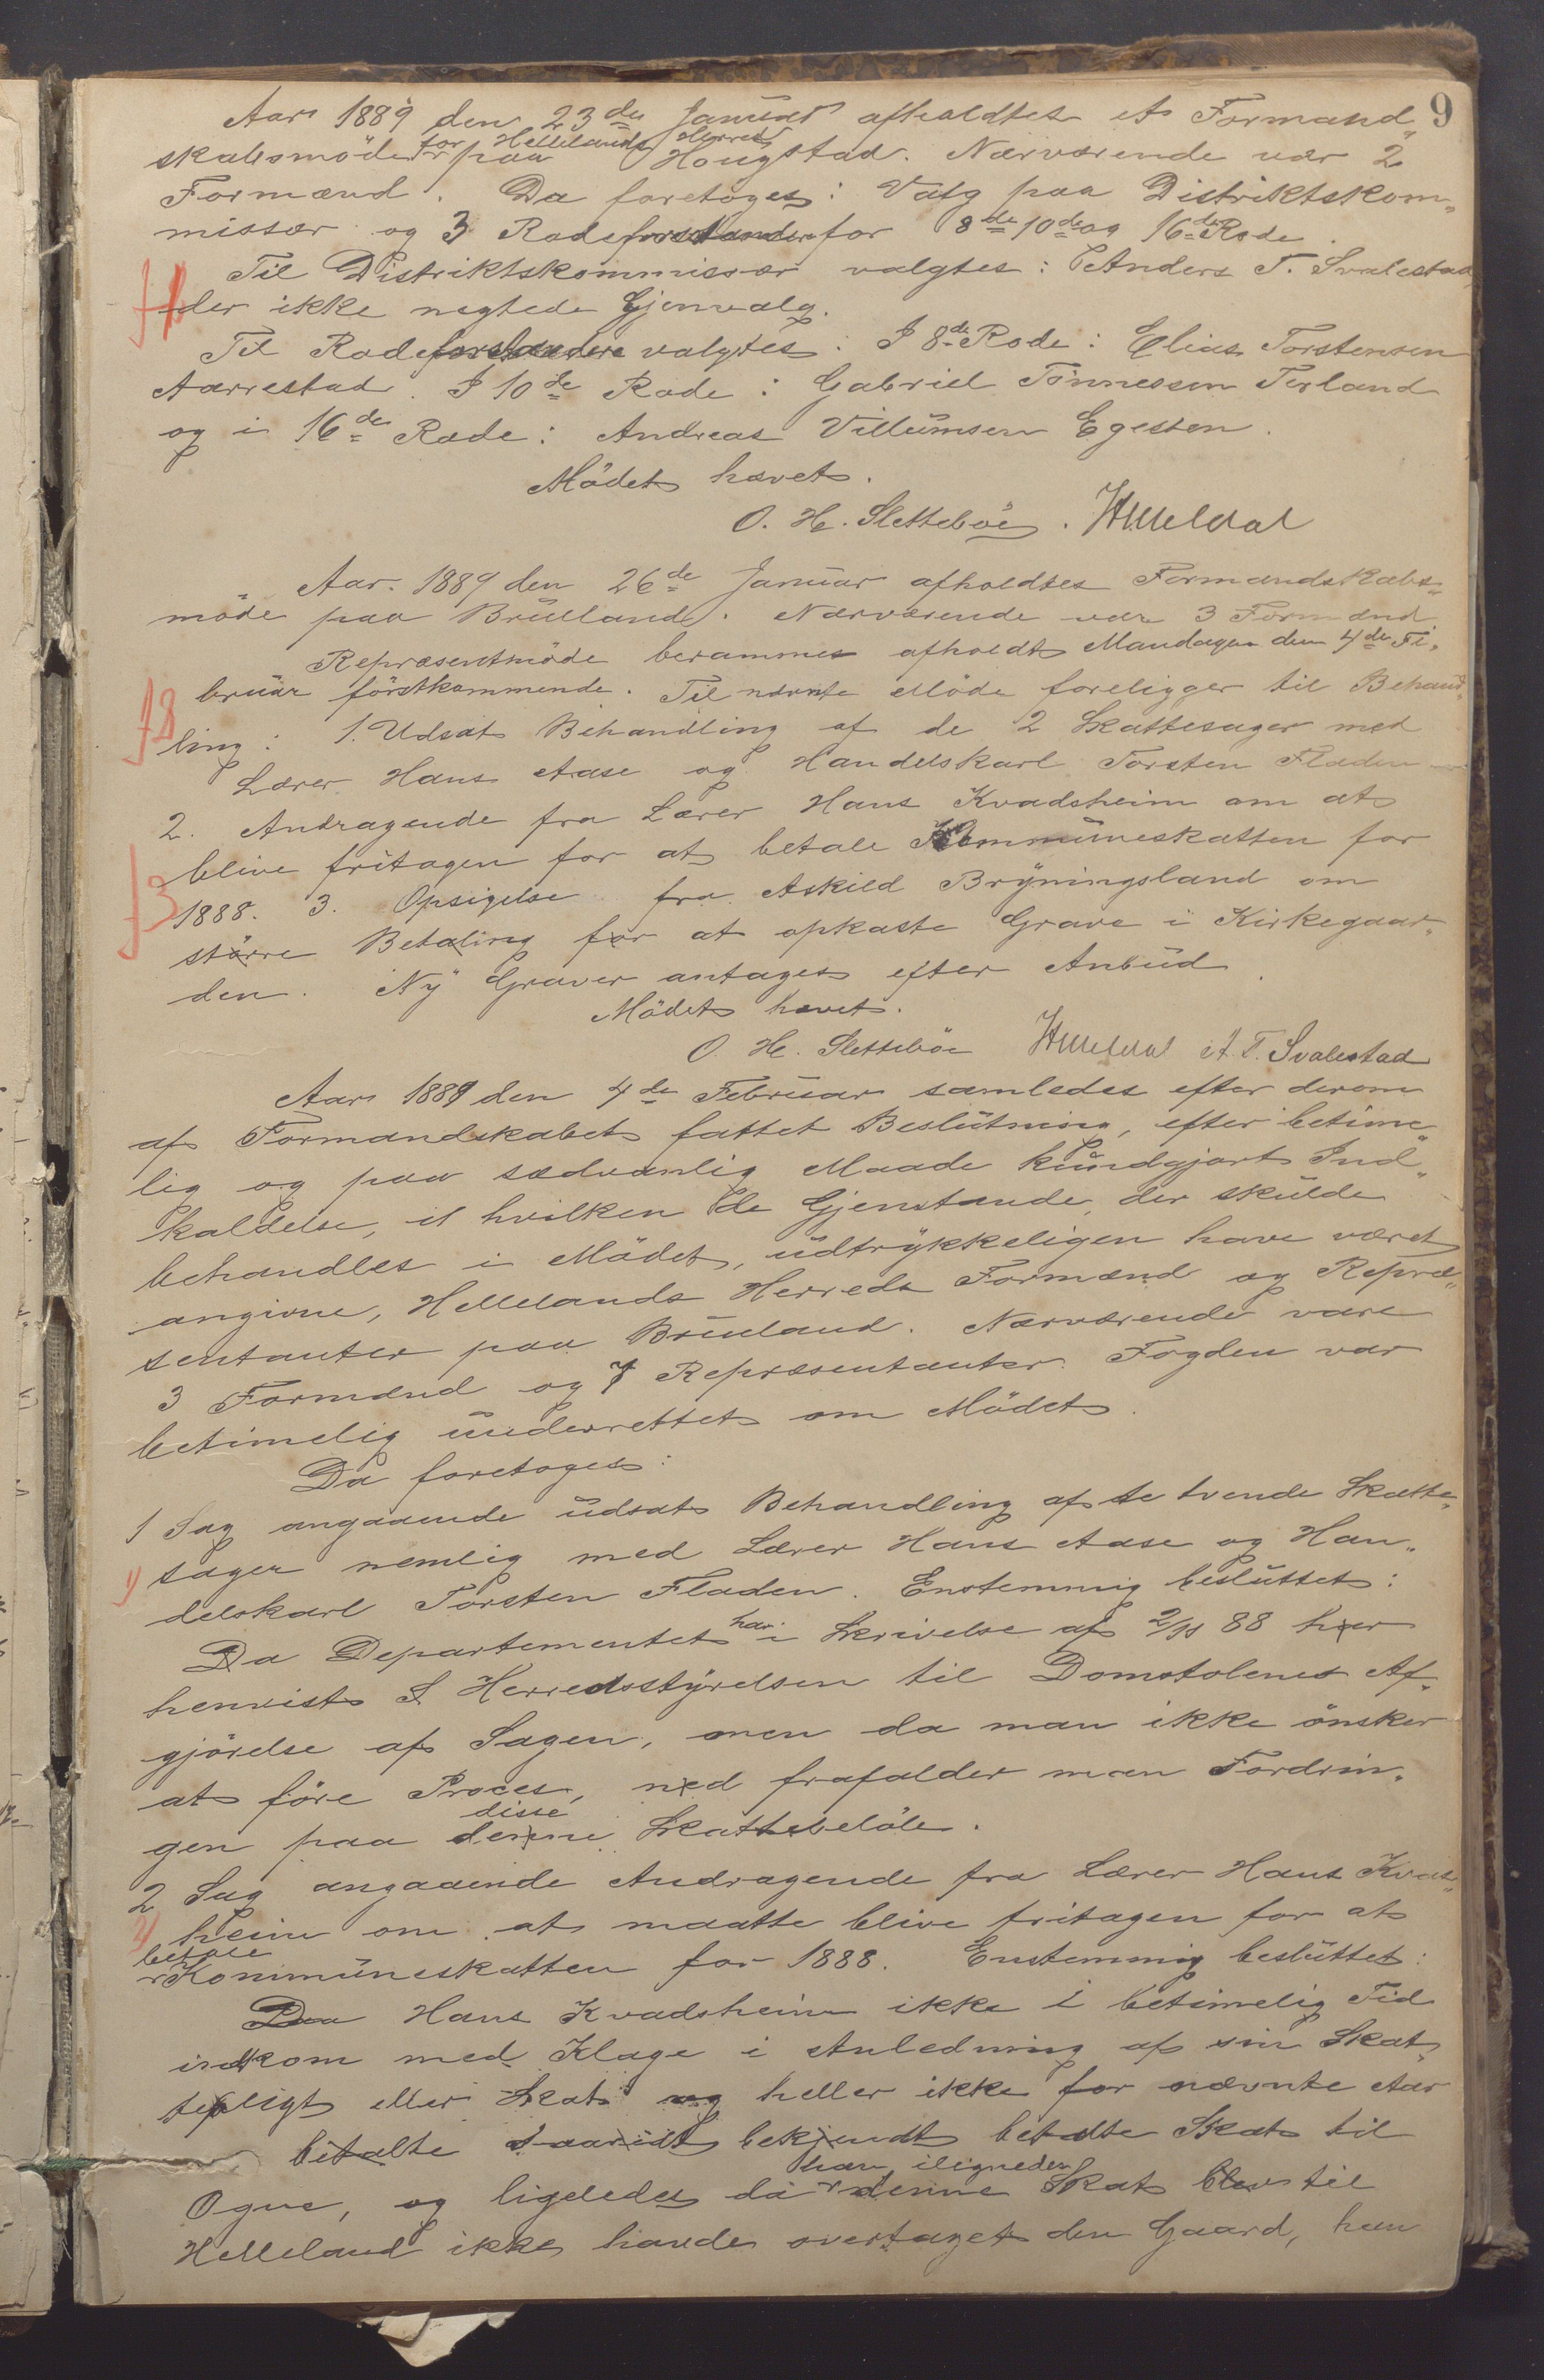 9
Aar 1889 den 23de Januar afholdtes et Formand„
skabsmöde for Hellelands Herred paa Hougstad. Nærværende var 2
Formænd. Da foretoges: Valg paa Distriktskom„
missær og 3 Rodeforstandere for 8de 10de og 16de Rode.
Til Distriktskommissær valgtes: Anders T. Svalestad
der ikke negtede Gjenvalg.
Til Rodeforstandere valgtes: I 8de Rode: Elias Torstensen
Aarrestad. I 10de Rode: Gabriel Tönnessen Terland
og i 16de Rode: Andreas Villumsen Egesten.
Mödet hævet.
O. H. Sletteböe.
Aar 1889 den 26de Januar afholdtes Formandskabs=
möde paa Bruland. Nærværende var 3 Formænd
Repræsentmöde berammes afholdt Mandagen den 4de Fe„
bruar förstkommende. Til nævnte Möde foreligger til Behand„
ling: 1. Udsat Behandling af de 2 Skattesager med
Lærer Hans Aase og Handelskarl Torsten Fladen
2. Andragende fra Lærer Hans Kvadsheim om at
blive fritagen for at betale Kommuneskatten for
1888. 3. Opsigelse fra Askild Bryningsland om
större Betaling for at opkaste Grave i Kirkegaar„
den. Ny Graver antages efter Anbud.
Mödet hævet.
O. H. Sletteböe A. T. Svalestad
Aar 1889 den 4de Februar samledes efter derom
af Formandskabet fattet Beslutning, efter betime„
lig og paa sædvanlig Maade kundgjort Ind„
kaldelse, i hvilken de Gjenstande, der skulde
behandles i Mödet, udtrykkeligen have været
angivne, Hellelands Herreds Formænd og Repræ„
sentanter paa Bruland. Nærværende vare
3 Formænd og 7 Repræsentanter. Fogden var
betimelig underrettet om Mödet.
Da foretoges:
1 Sag angaaende udsat Behandling af de tvende Skatte„
1) sager nemlig med Lærer Hans Aase og Han„
delskarl Torsten Fladen. Enstemmig besluttet:
Da Departementet har i Skrivelse af 2/11 88 har
henvist Herredsstyrelsen til Domstolenes Af„
gjörelse af Sagen, men da man ikke önsker
at före Proces, ned frafalder man Fordrin„
gen paa denne disse Skattebelöb.
2 Sag angaaende Andragende fra Lærer Hans Kvas„
2) heim om at maatte blive fritagen for at
betale Kommuneskatten for 1888. Enstemmig besluttet:
Da Hans Kvadsheim ikke i betimelig Tid
indkom med Klage i Anledning af sin Skat„
tepligt eller Skat og heller ikke for nævnte Aar
betalte saavidt bekjendt betalte Skat til
Ogne, og ligeledes da han, ilignedes denne Skat blev til
Helleland ikke havde overtaget den Gaard, han